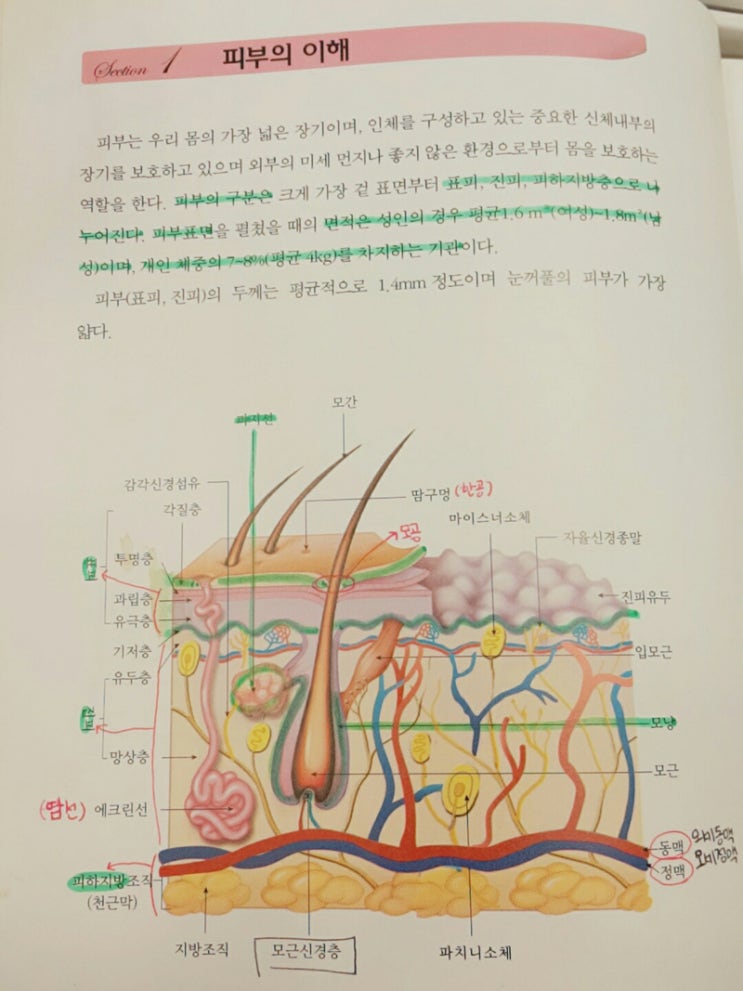 Section 1 피부의 이해
피부는 우리 몸의 가장 넓은 장기이며, 인체를 구성하고 있는 중요한 신체내부의
장기를 보호하고 있으며 외부의 미세 먼지나 좋지 않은 환경으로부터 몸을 보호하는
역할을 한다. 피부의 구분은 크게 가장 겉 표면부터 표피, 진피, 피하지방층으로 나
누어진다. 피부표면을 펼쳤을 때의 면적은 성인의 경우 평균1.6㎡(여성)~1.8㎡(남
성)이며, 개인 체중의 7~8%(평균 4kg)를 차지하는 기관이다.
피부(표피, 진피)의 두께는 평균적으로 1.4mm 정도이며 눈꺼풀의 피부가 가장
얇다.
모간
피지선
감각신경섬유
땀구멍 (한공)
각질층
마이스너소체
모공
자율신경종말
투명층
표피
과립층
진피유두
유극층
기저층
입모근
유두층
진피
모낭
망상층
모근
(땀선) 에크린선
동맥
정맥
피하지방조직
(천근막)
지방조직
모근신경층
파치니소체